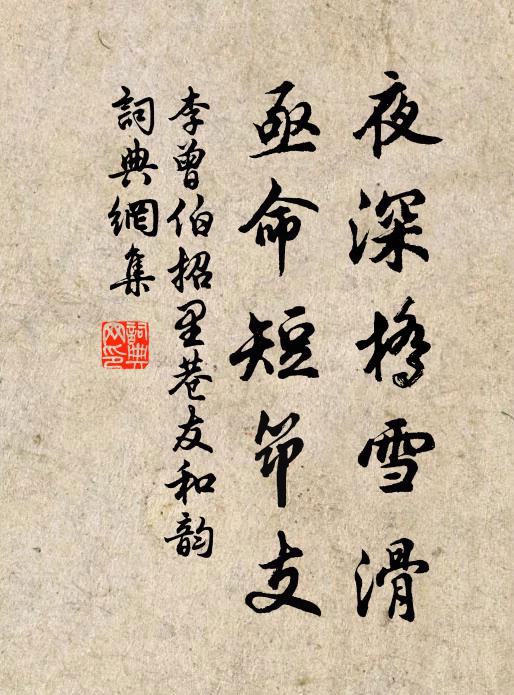 夜深橋雪滑
亟命短笻支
李曾伯招里巷友和韵
詞典網集
詞典網印